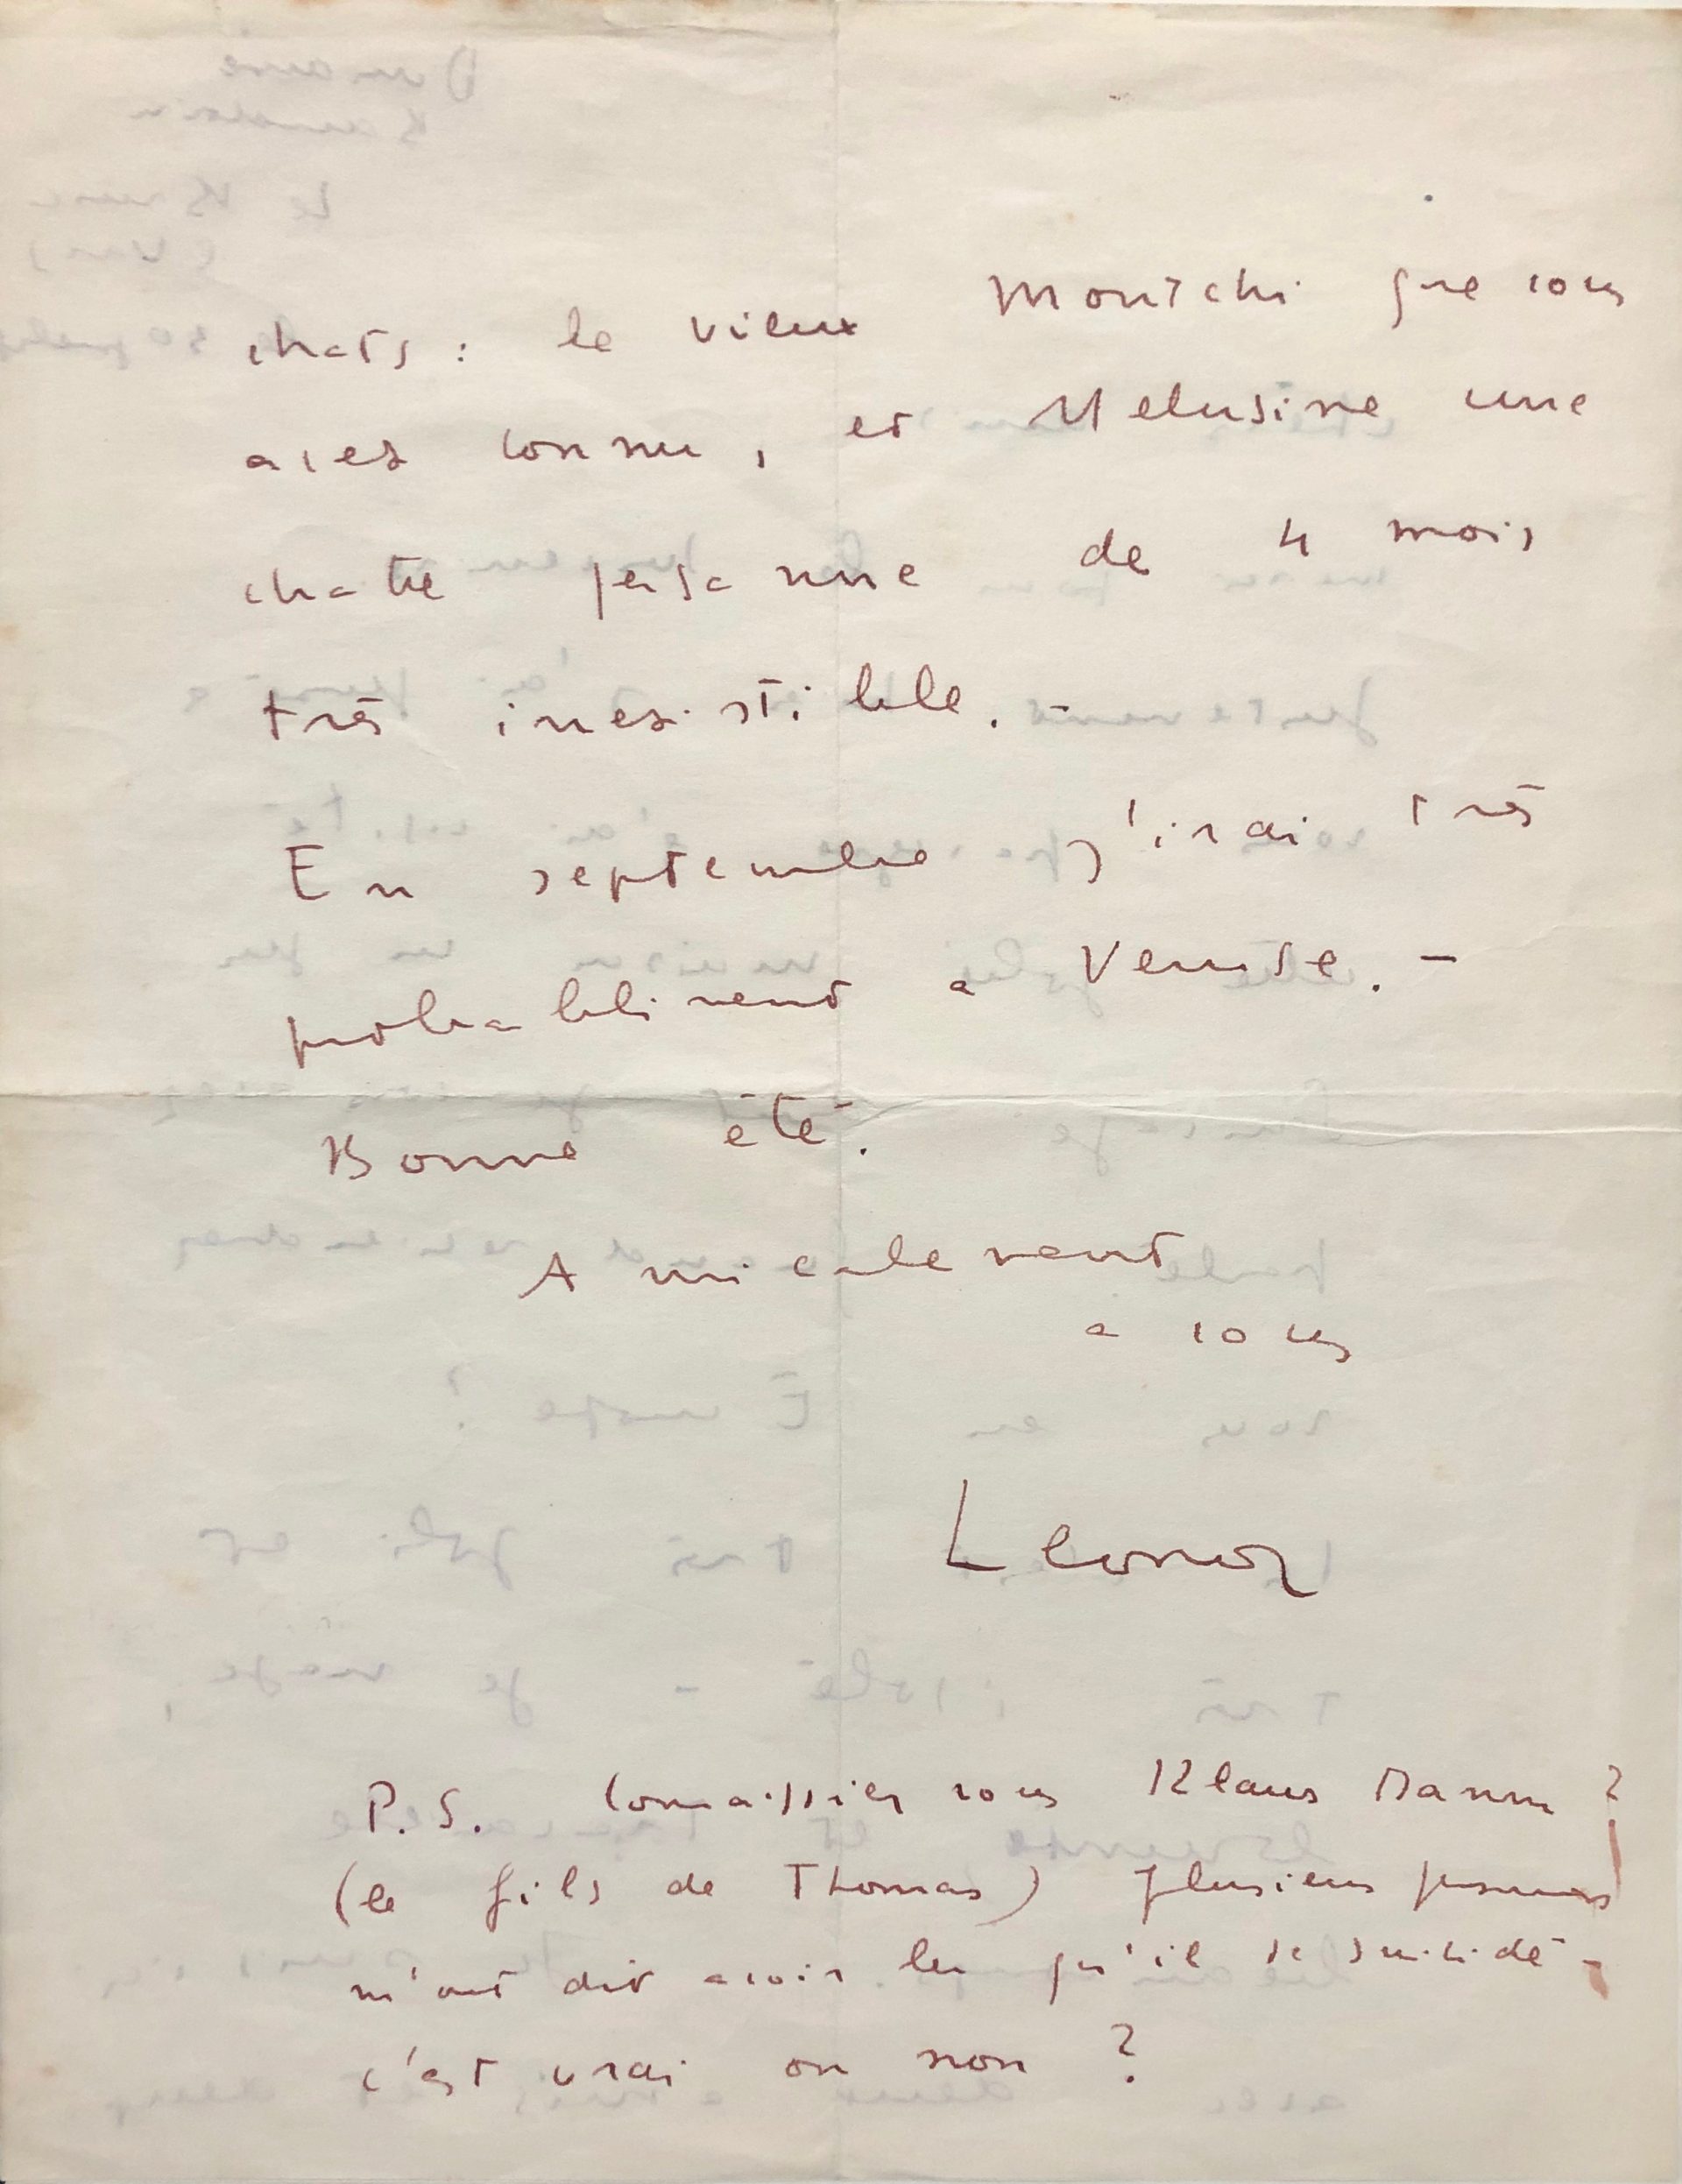 chats : le vieux Moutchi que vous
avez connu, et Melusine une
chatte persanne de 4 mois
très irresistible. -
En septembre j'irai très
probablement a Venise. -
Bonne été.
Amicalement
a vous
Leonor
P.S. Connaissiez vous Klaus Mann ?
(le fils de Thomas) plusieurs personnes
m'ont dit avoir lu qu'il se suicidé -
c'est vrai ou non ?